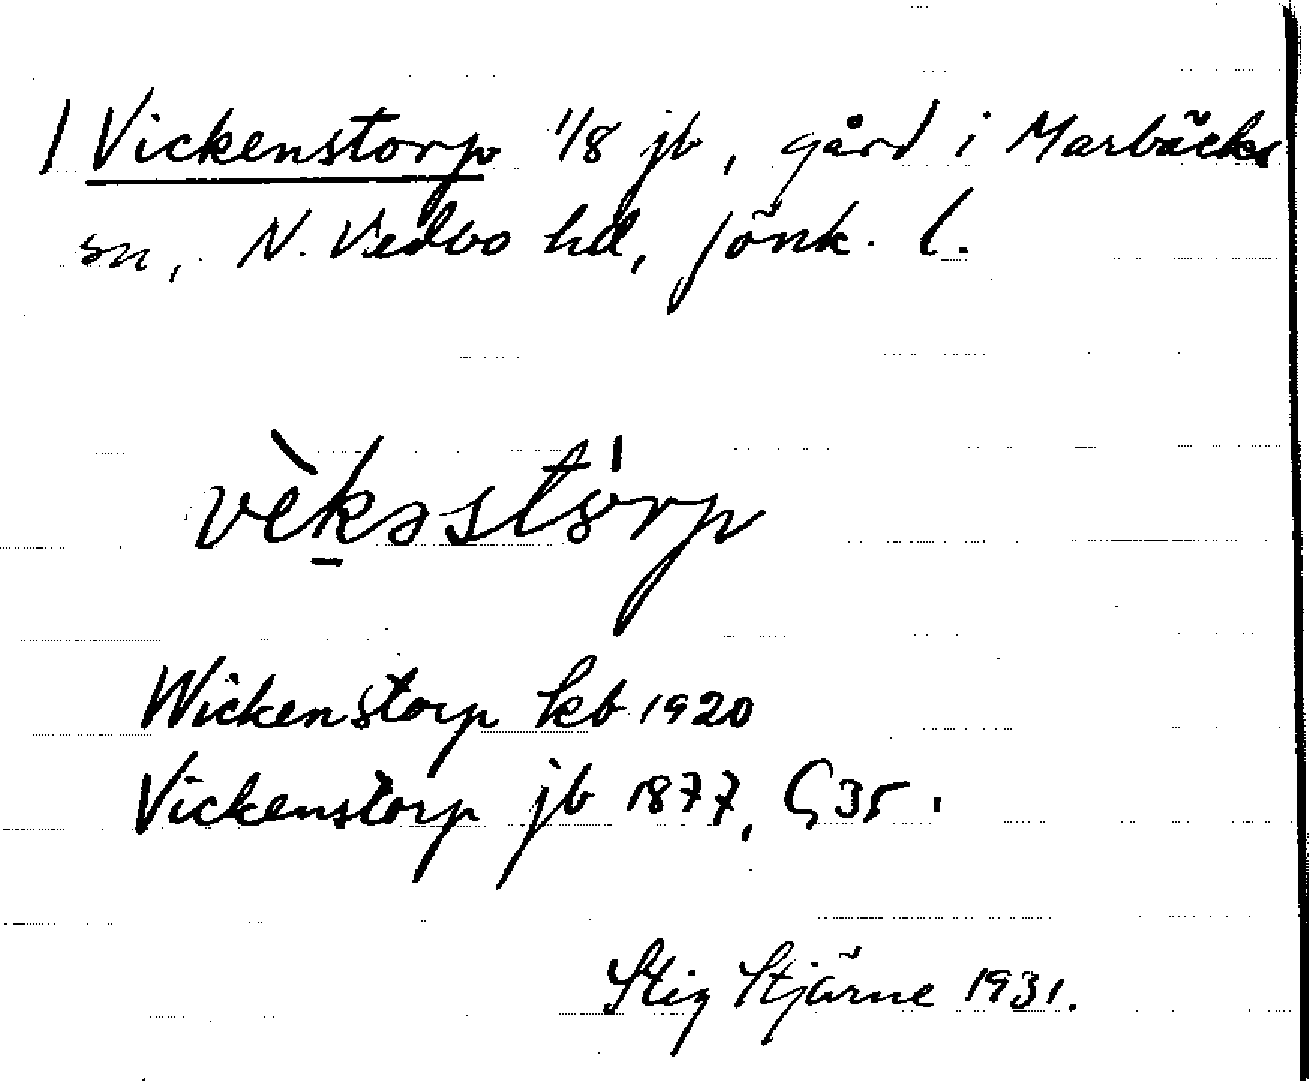 | Vickenstorp 1/8 jb, gård i Marbäcks
sn, N. Vedbo hd, Jönk. l.
vèkəstórp
Wickenstorp kb 1920
Vickenstorp jb 1877, G35.
Stig Stjärne 1931.